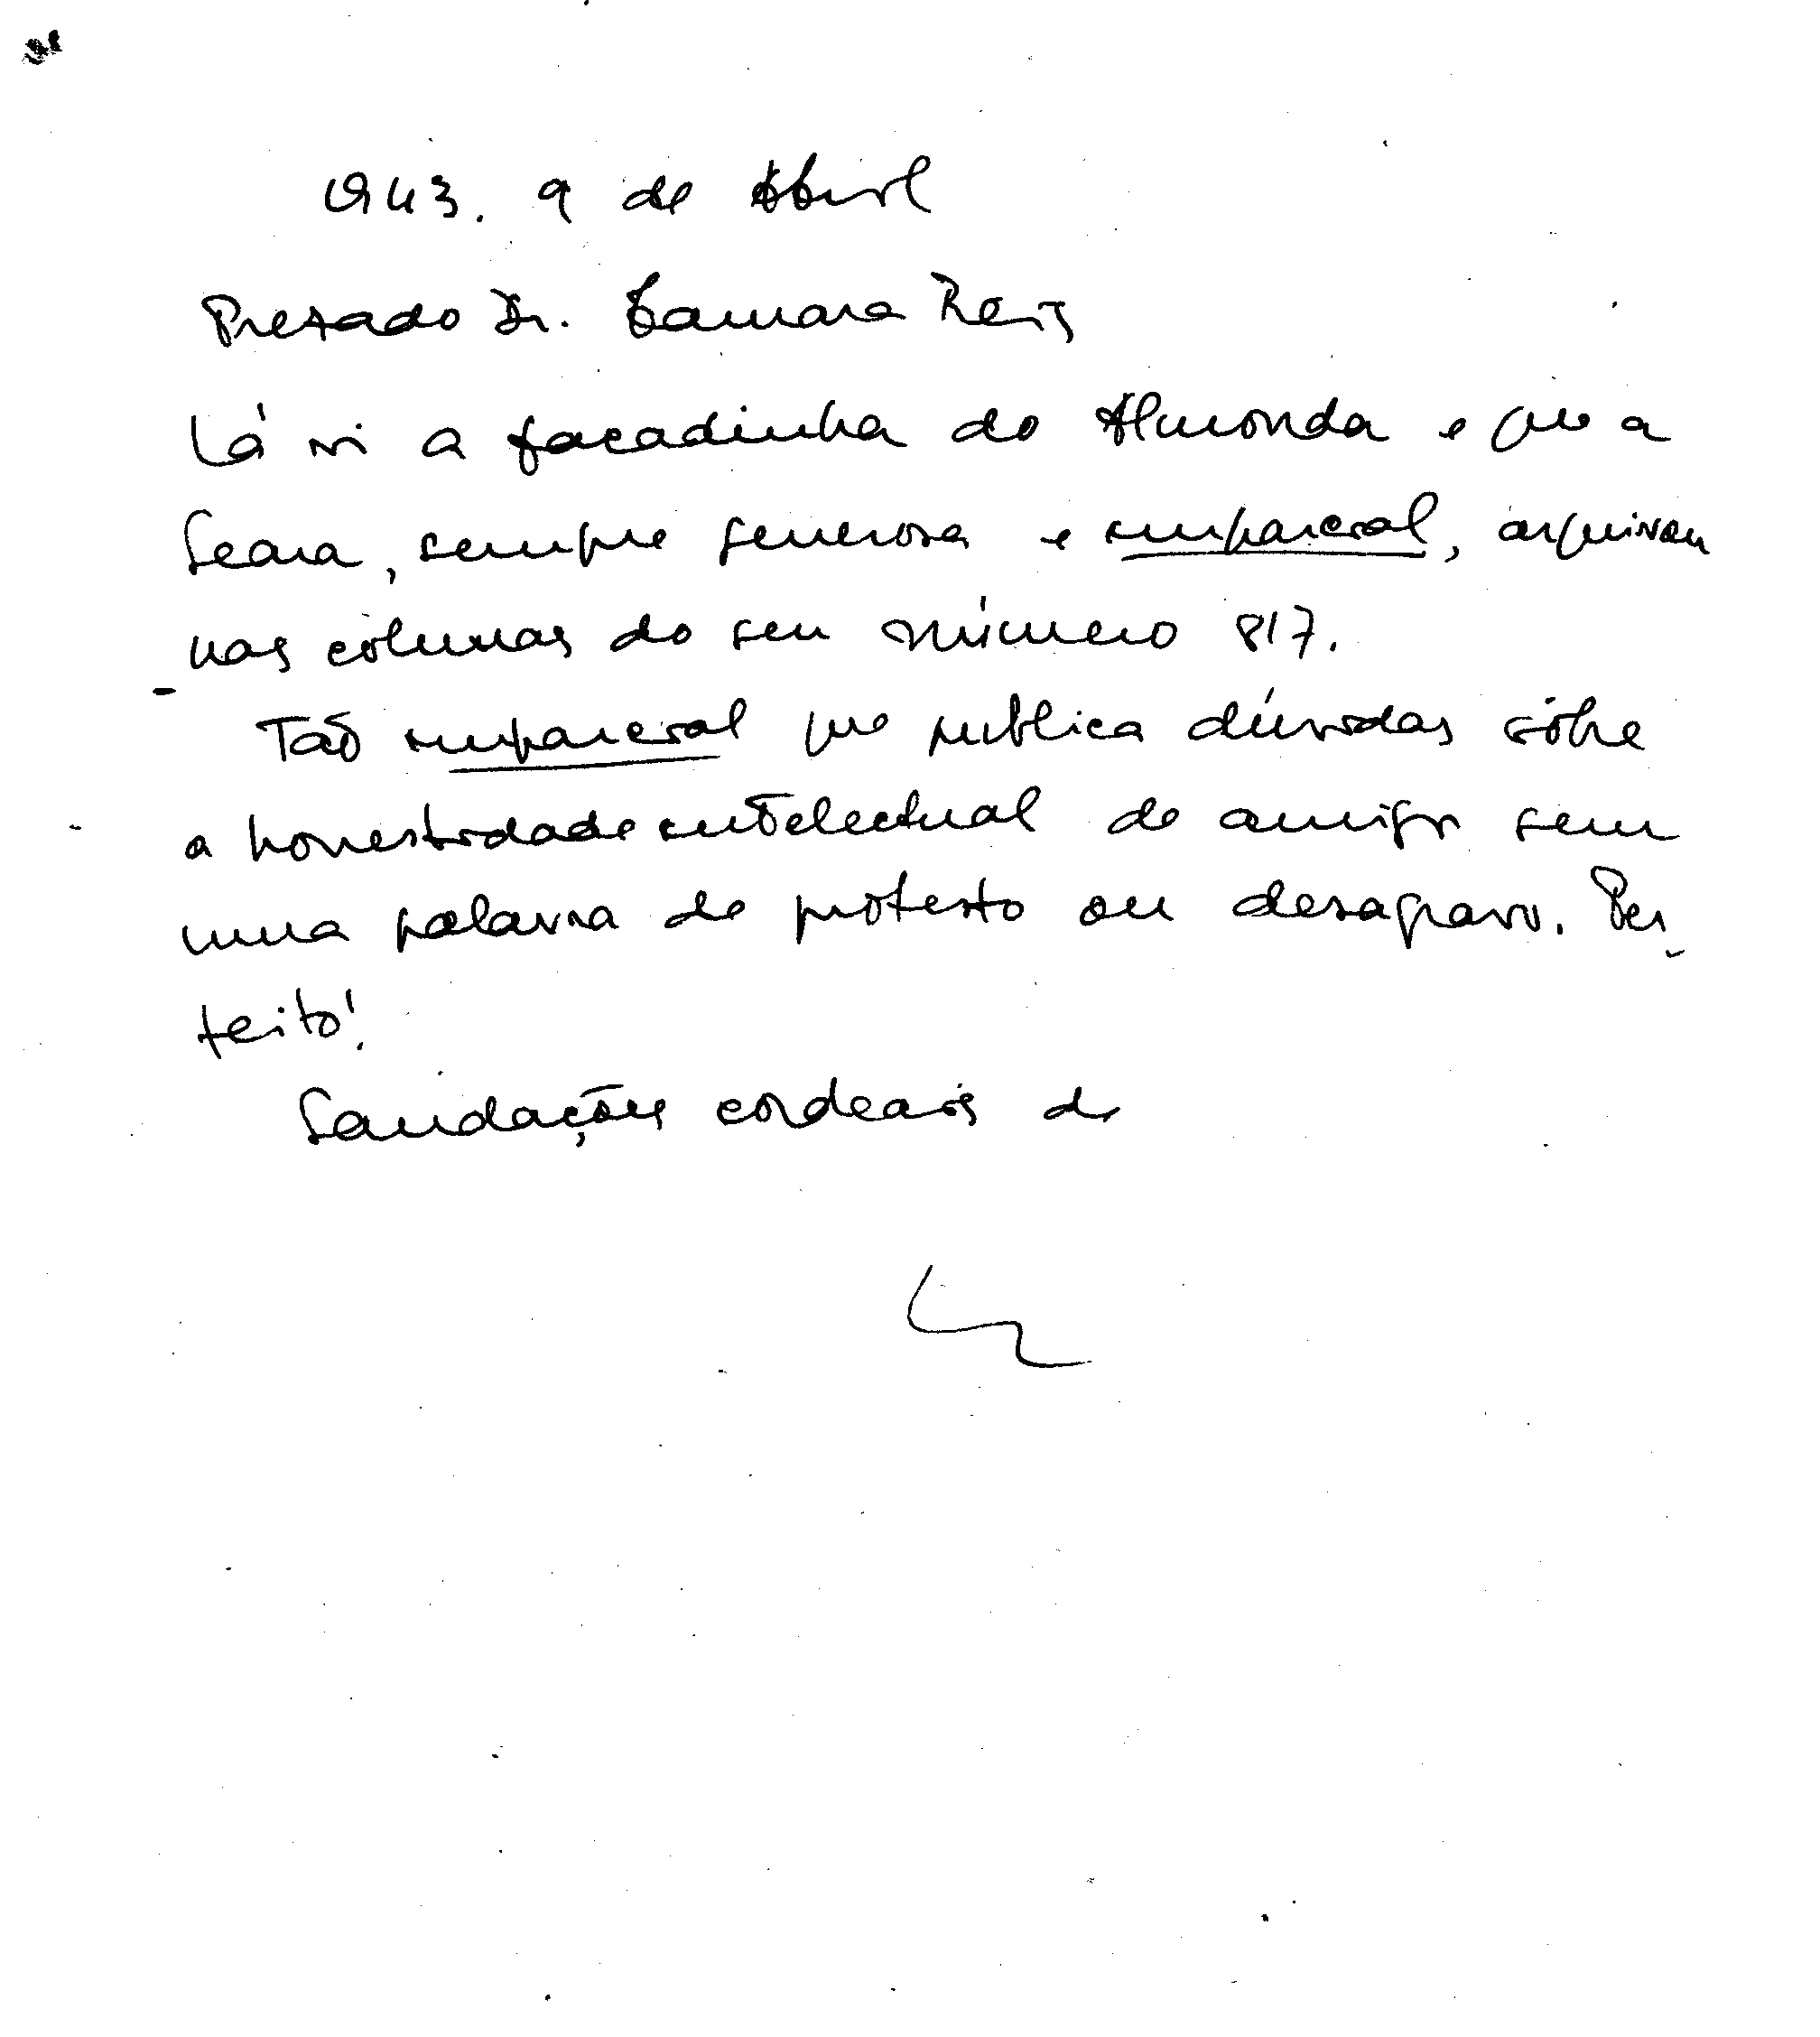 1943. 9 de Abril
Prezado Dr. Camara Reis
Lá vi a facadinha do Almonda e que a
Seara, sempre generosa e imparcial, arquivou
nas colunas do seu número 817.
Tão imparcial que publica dúvidas sôbre
a honestidade intelectual de amigo sem
uma palavra de protesto ou desagravo. Per-
feito!
Saudações cordeais de